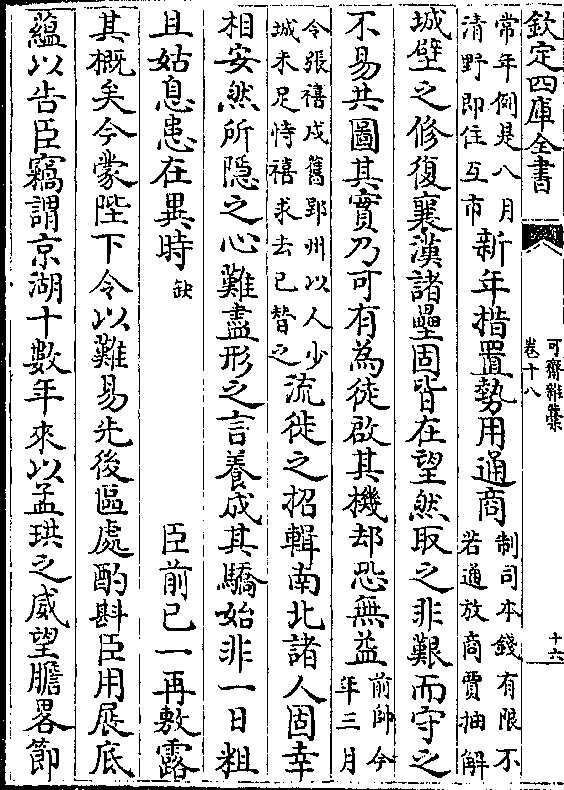 欽定四庫全書
可齋雜藁
卷十八
十六
常年例是八月
清野即住互市
新年措置勢用通商
制司本錢有限不
若通放商賈抽解
城壁之修復襄漢諸壘固皆在望然取之非艱而守之
不易共圖其實乃可有為徒啟其機却恐無益
前帥今
年三月
令張禧戍舊郢州以人少
城未足恃禧求去已替之
流徙之招輯南北諸人固幸
相安然所隱之心難盡形之言養成其驕始非一日粗
且姑息患在異時
缺
臣前已一再敷露
其概矣今蒙陛下令以難易先後區處酌斟臣用展底
蘊以告臣竊謂京湖十數年來以孟珙之威望膽畧節